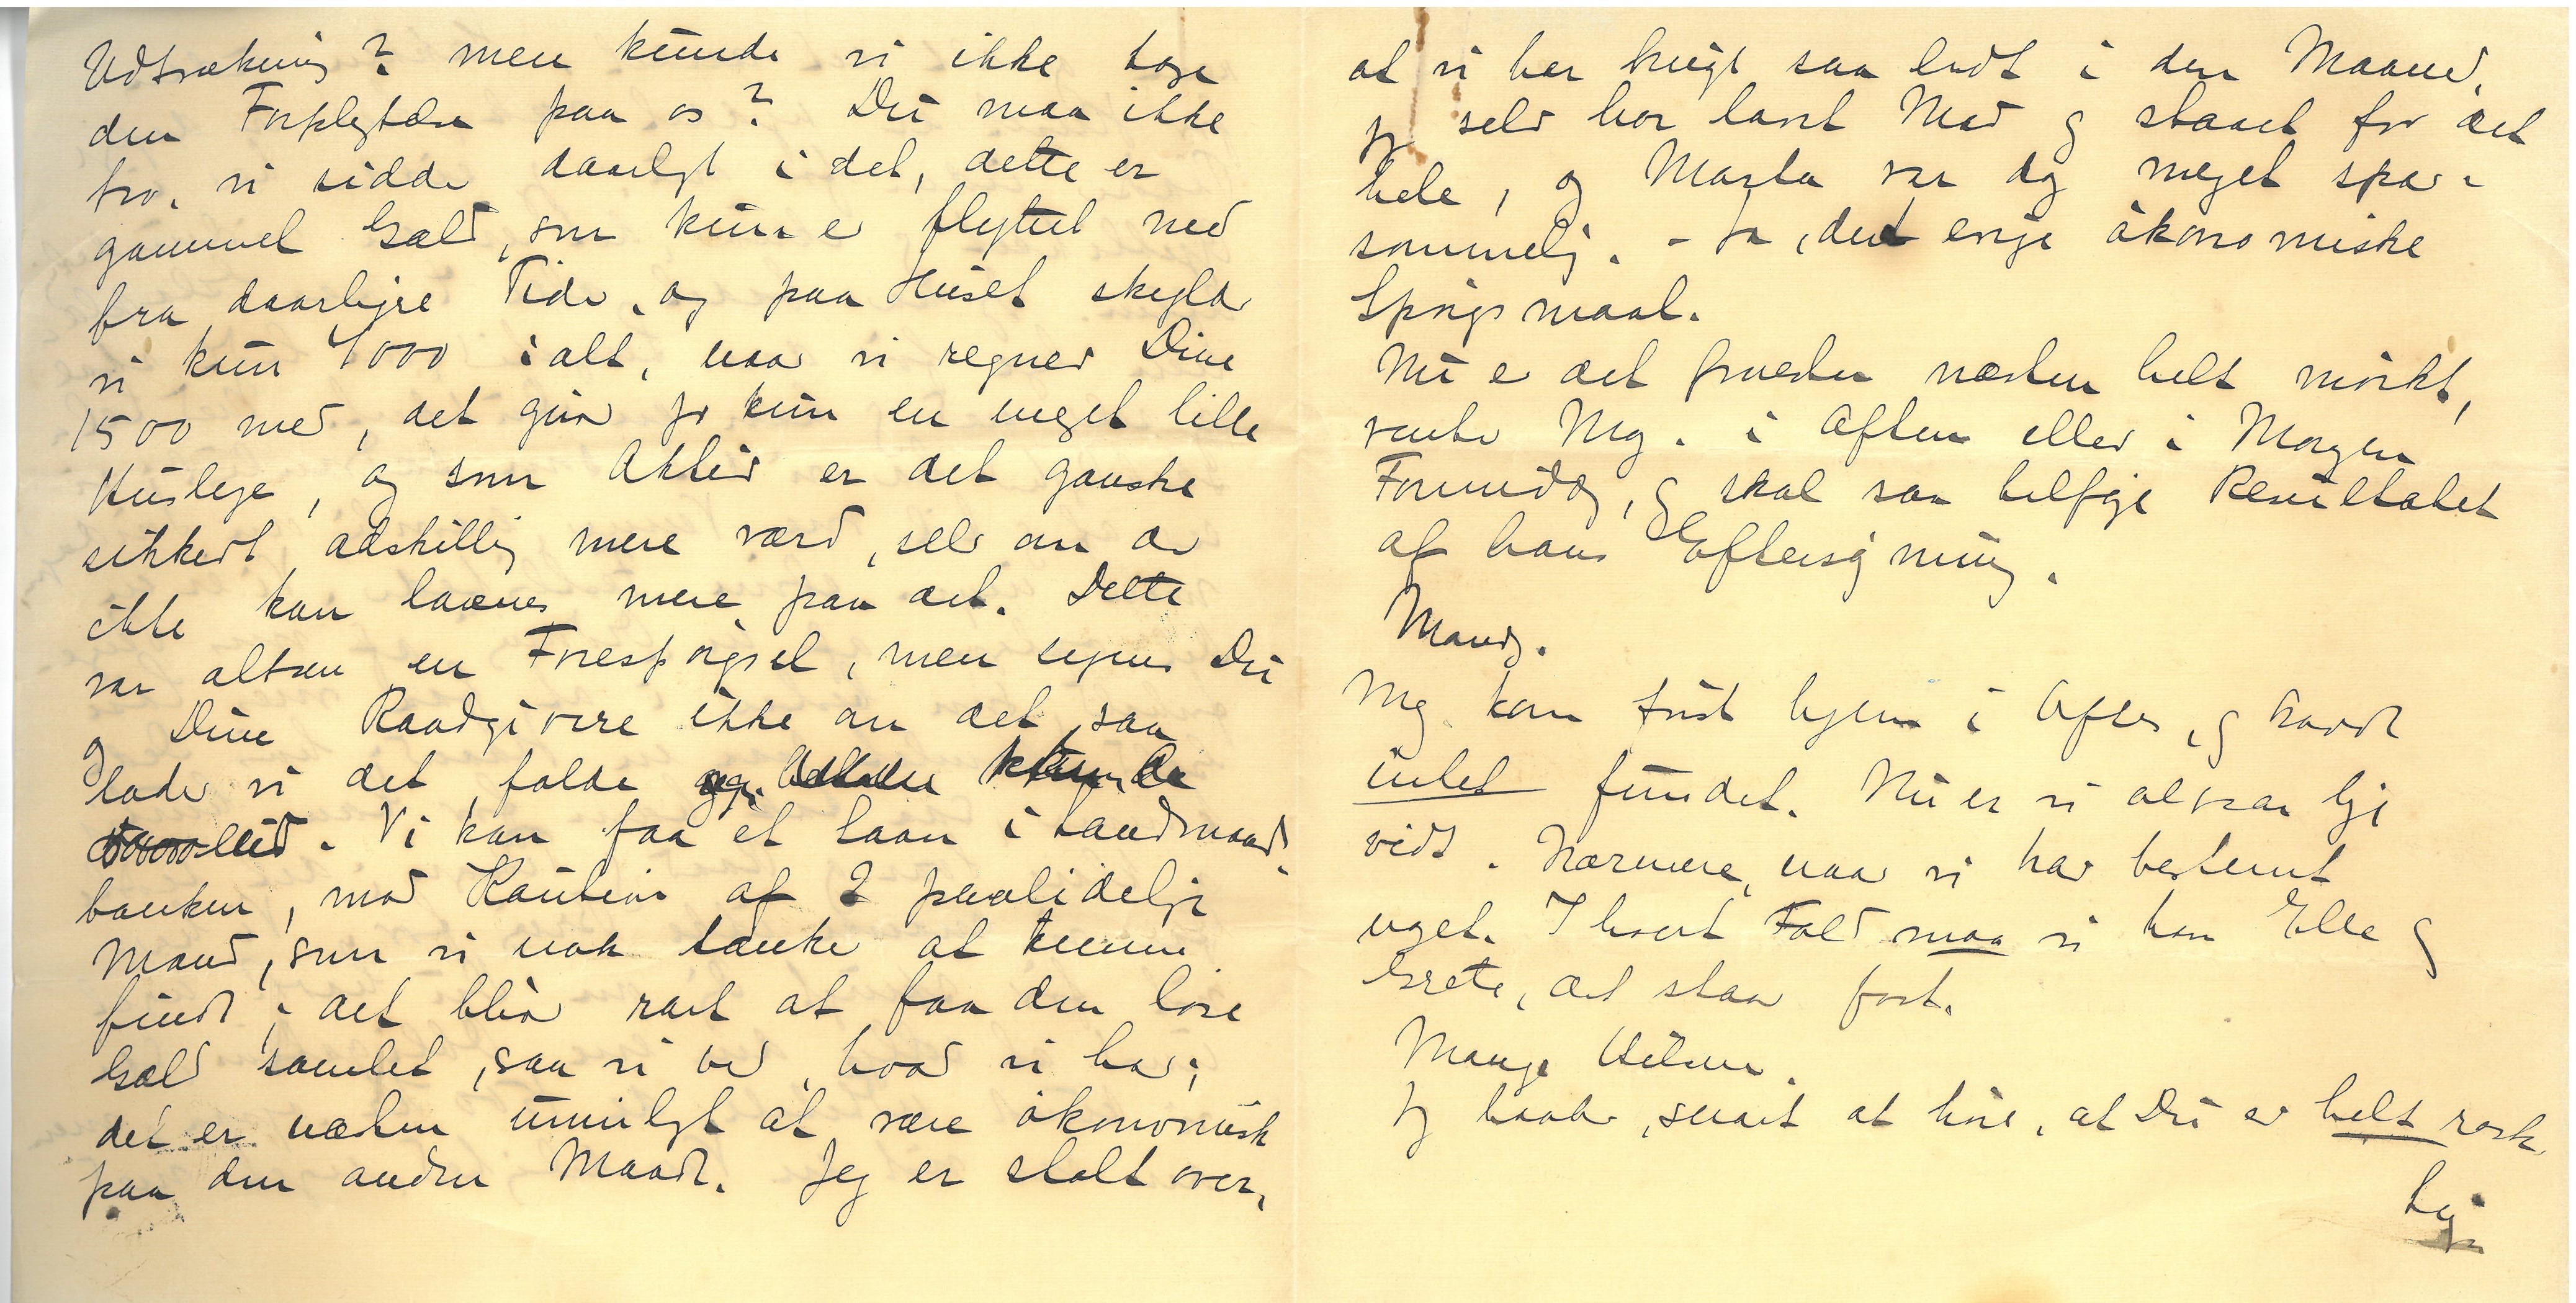 Udtrækning? men kunde vi ikke tage
den Forpligtelse paa os? Du maa ikke
tro, vi sidder daarligt i det, dette er
gammel Gæld, som kun er flyttet ned
fra daarligere Tider, og paa Huset skylder
vi kun 4000 ialt, naar vi regner Dine
1500 med, det giver jo kun en meget lille
Husleje, og som Aktiv er det ganske
sikkert adskillig mere værd, selv om der
ikke kan laanes mere paa det. Dette
var altsaa en Forespørgsel, men synes Du
og Dine Raadgivere ikke om det, saa
lader vi det falde
. Vi kan faa et Laan i Landmands-
banken, mod Kaution af 2 paalidelige
Mænd, som vi nok tænker at kunne
finde; det bliver rart at faa den løse
Gæld samlet, saa vi ved, hvad vi har;
det er næsten umuligt at være økonomisk
paa den anden Maade. Jeg er stolt over,
at vi har brugt saa lidt i den Maaned,
jeg selv har lavet Mad og staaet for det
hele, og Marta var dog meget spar-
sommelig. - Ja, det evige økonomiske
Spørgsmaal.
Nu er det forresten næsten helt mørkt,
venter Mg. i Aften eller i Morgen
Formiddag, og skal saa tilføje Resultatet
af hans Eftersøgning.
Mandg.
Mg. kom først hjem i Aftes, og havde
intet fundet. Nu er vi alvorlige
vidt. Nærmere, naar vi har bestemt
noget. I hvert Fald maa vi have Elle og
Grete, det staar fast.
Mange Hilsner.
Jeg haaber snart at høre, at Du er helt rask